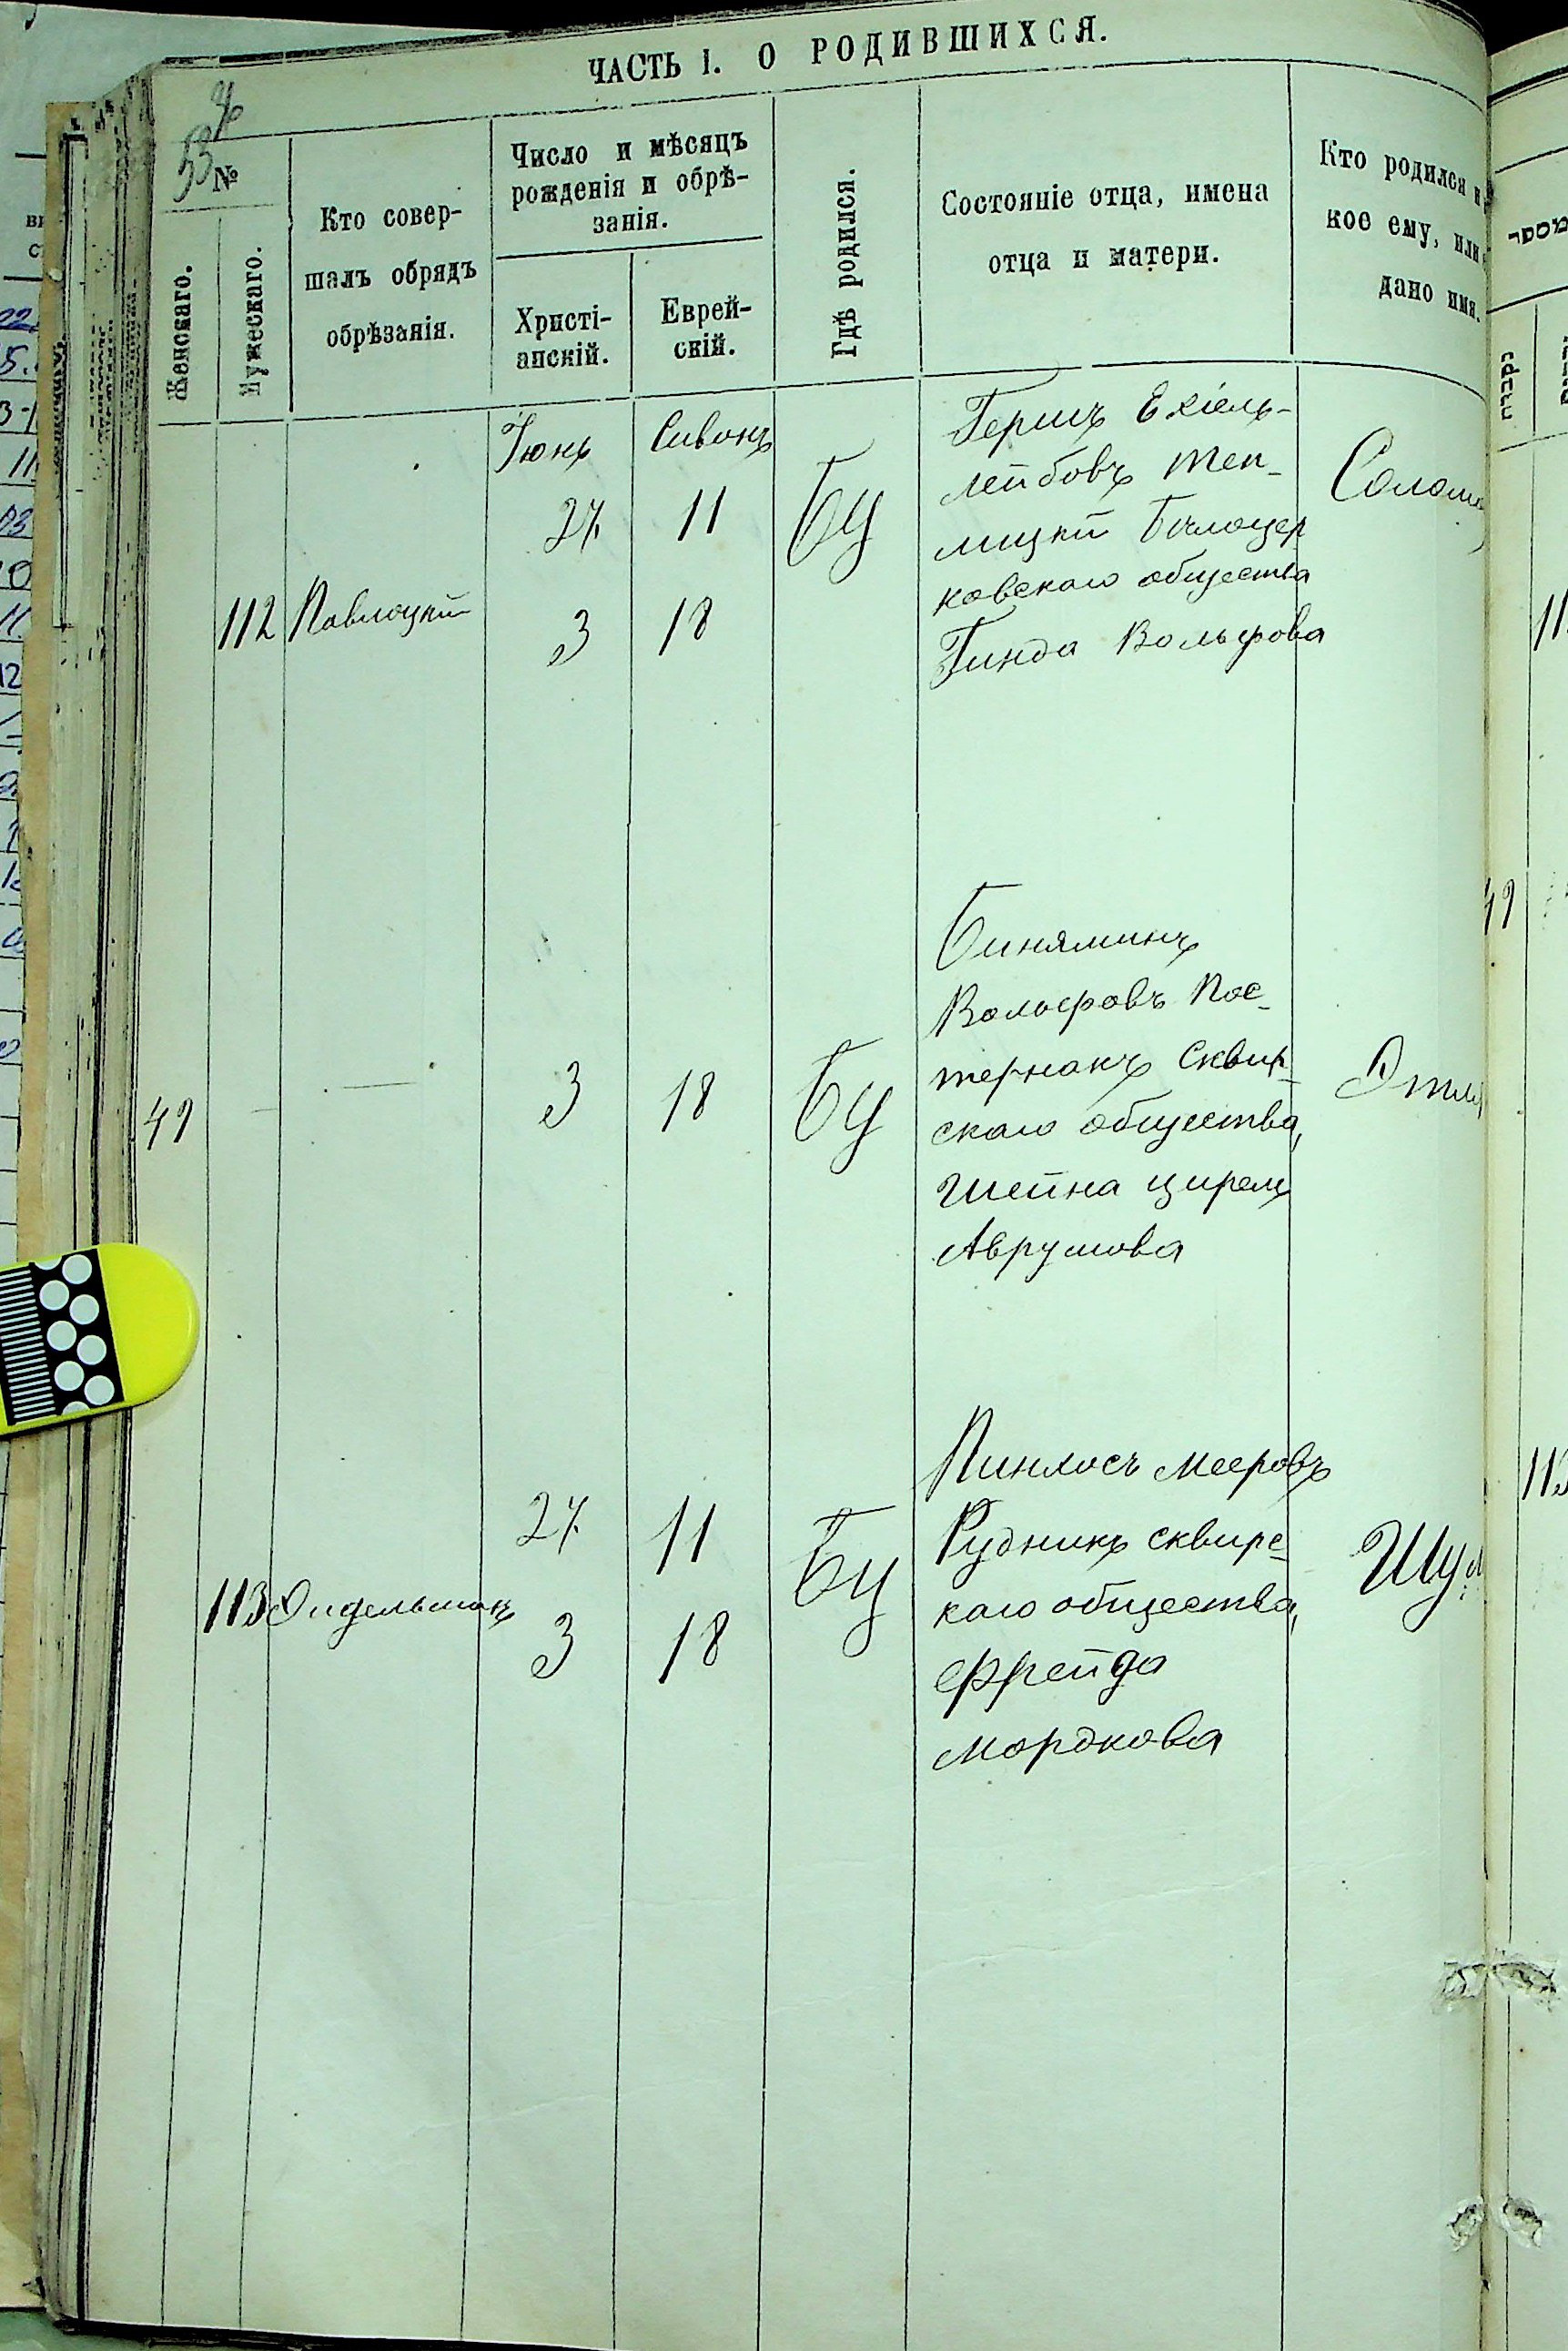 ЧАСТЬ I. О РОДИВШИХСЯ.
53
№
Женскаго.
Мужескаго.
Кто совер-
шалъ обрядъ
обрѣзанія.
Число и мѣсяцъ
рожденія и обрѣ-
занія.
Христі-
анскій.
Еврей-
скій.
Гдѣ родился.
Состояніе отца, имена
отца и матери.
Кто родился и
кое ему, или
дано имя.
Іюнь
Сивонъ
112
Павлоцкій
27
11
3
18
БЦ
Гершъ Ехіель-
лейбовъ Теп-
лицкій Бѣлоцер
ковскаго общества
Гинда Вольфова
Солом
49
—
3
18
БЦ
Биняминъ
Вольфовъ Пос-
тернакъ Сквир-
скаго общества,
Шейна Цирля
Аврумова
Этля
113
Эйдельманъ
27
11
3
18
БЦ
Пинхосъ Мееровъ
Рудникъ Сквирс-
каго общества,
Фрейда
Мордкова
Шул
מספר
נקבות
49